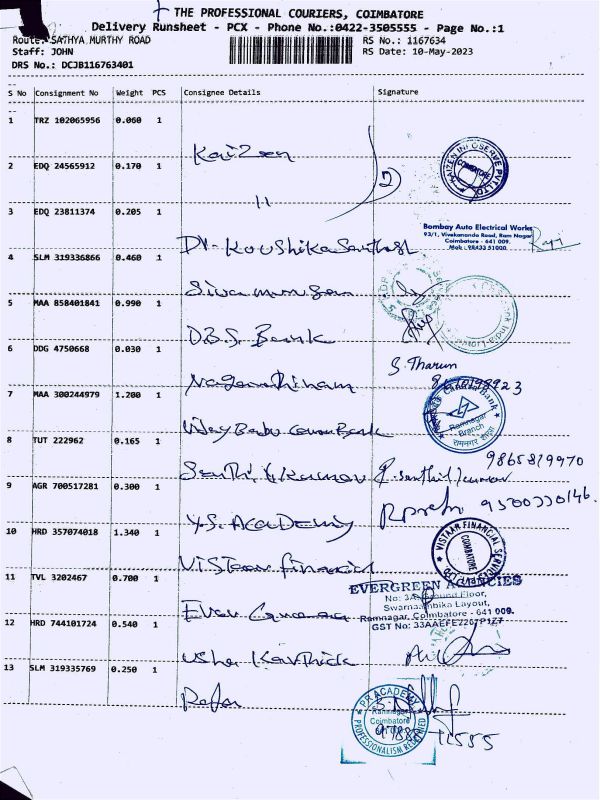 THE PROFESSIONAL COURIERS, COIMBATORE
Delivery Runsheet - PCX - Phone No.:0422-3505555 - Page No.:1
Route: SATHYA MURTHY ROAD RS No.: 1167634
Staff: JOHN RS Date: 10-May-2023
DRS No.: DCJB116763401
S No Consignment No Weight PCS Consignee Details Signature
1 TRZ 102065956 0.060 1 Kaizen
KAIZEN INFOSERVE PVT LTD COIMBATORE
2 EDQ 24565912 0.170 1 11
3 EDQ 23811374 0.205 1 Dr. Koushika Santhosh
Bombay Auto Electrical Works
93/1, Vivekananda Road, Ram Nagar
Coimbatore - 641 009.
Mob : 98433 51000
4 SLM 319336866 0.460 1 Sivamurugan
5 MAA 858401841 0.990 1 D.B.S. Bank
6 DDG 4750668 0.030 1 Nagarathinam S. Tharun
7 MAA 300244979 1.200 1 Bank
Ramnagar Branch
8 TUT 222962 0.165 1 9865819970
9 AGR 700517281 0.300 1 Y.S. Academy
10 HRD 357074018 1.340 1 Vistaar Financial
VISTAAR FINANCIAL SERVICES PVT LTD COIMBATORE
11 TVL 3202467 0.700 1
EVERGREEN AGENCIES
Floor,
Swarnambika Layout,
Ramnagar, Coimbatore - 641 009.
GST No:
12 HRD 744101724 0.540 1 Usha Karthick
13 SLM 319335769 0.250 1
PR ACADEMY
Ramnagar
Coimbatore
PROFESSIONALISM REDEFINED